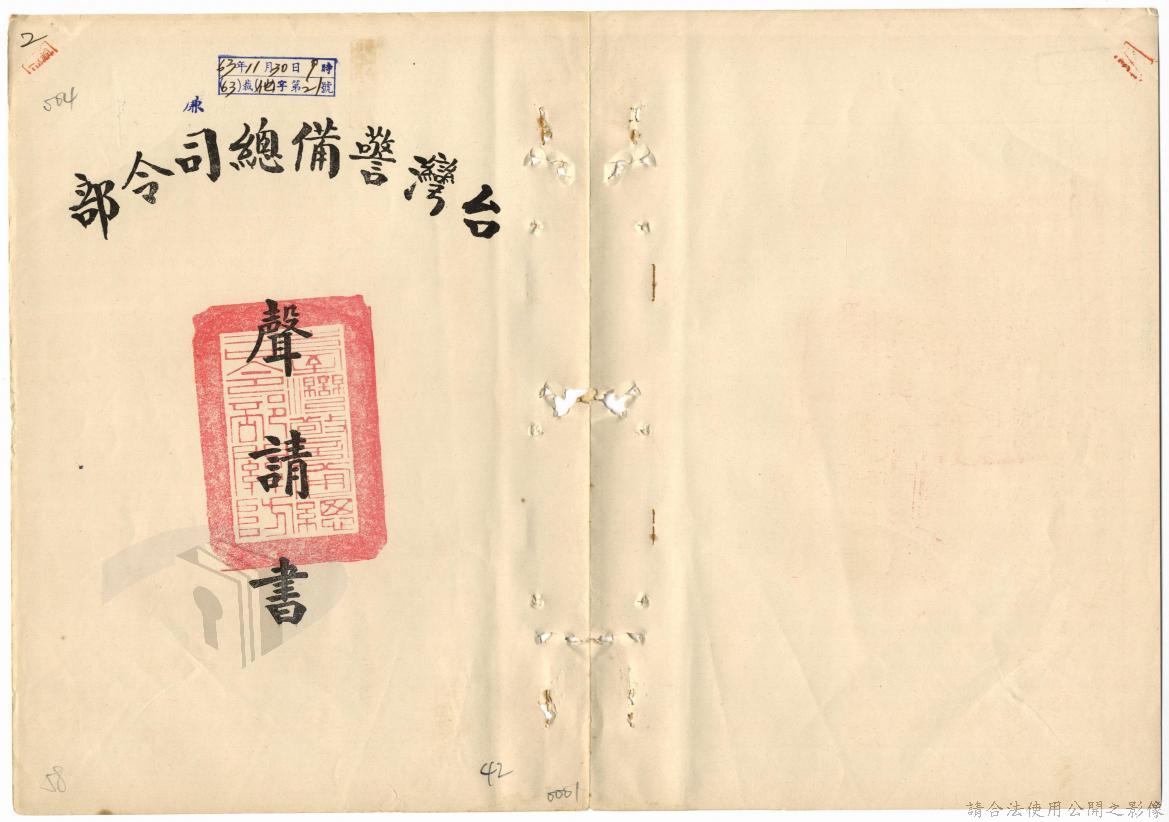 2
63年11月30日9時
(63)裁他字第21號
504
台灣警備總司令部
聲請書
58
42
0001
請合法使用公開之影像